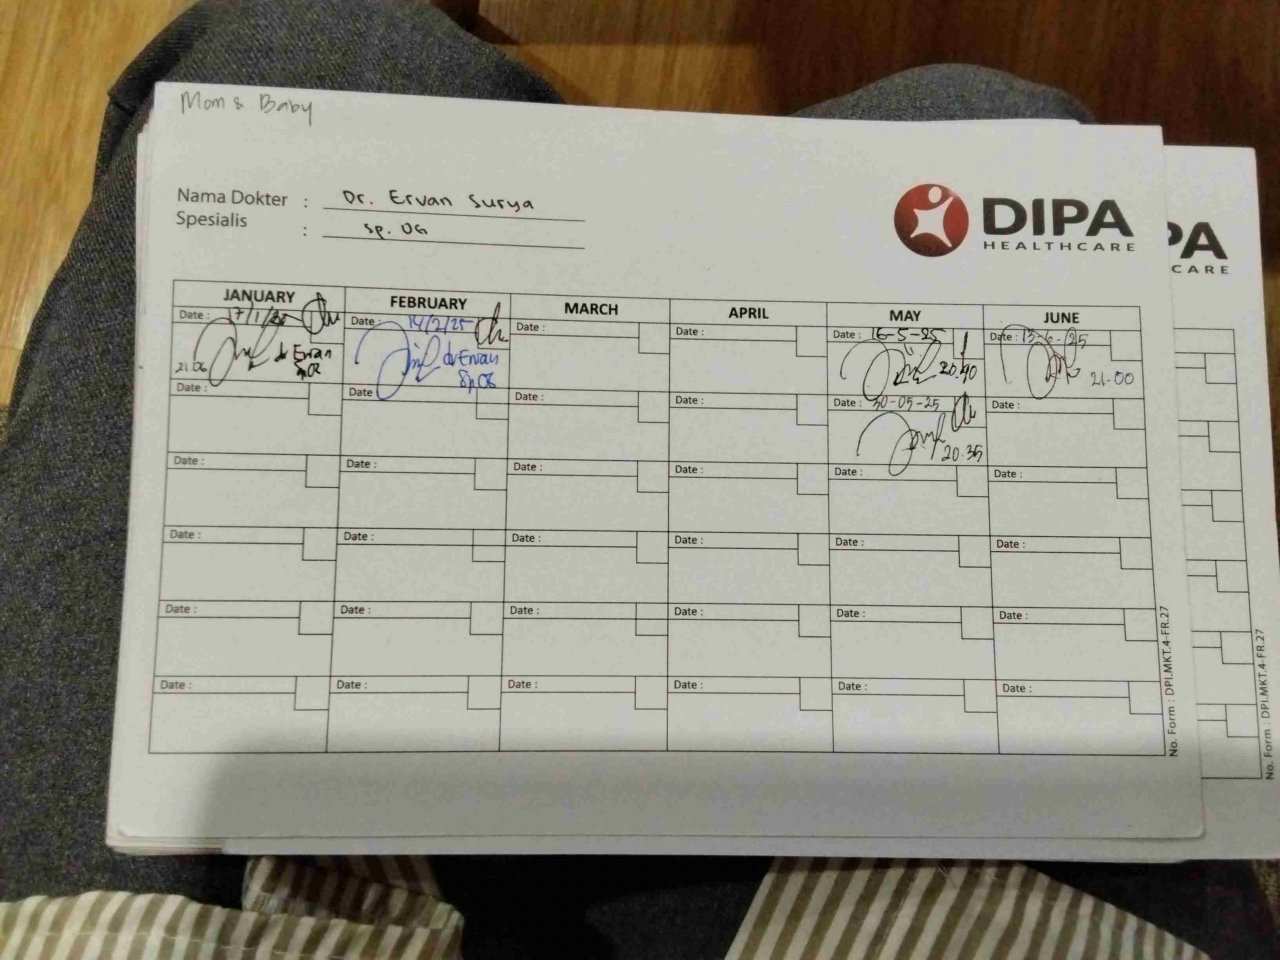 Mom & Baby
Nama Dokter : Dr. Ervan Surya
Spesialis : Sp. OG
DIPA
HEALTHCARE
PA
CARE
JANUARY FEBRUARY MARCH APRIL MAY JUNE
Date : 17/1/25 Date : 14/2/25 Date : Date : Date : 16-5-25 Date : 13-6-25
21.06 dr Ervan dr Ervan 20.40 21-00
SpOG SpOG
Date : Date : Date : Date : Date : 30-05-25 Date :
20.35
Date : Date : Date : Date : Date : Date :
Date : Date : Date : Date : Date : Date :
Date : Date : Date : Date : Date : Date :
Date : Date : Date : Date : Date : Date :
No. Form : DPI.MKT.4-FR.27
No. Form : DPI.MKT.4-FR.27